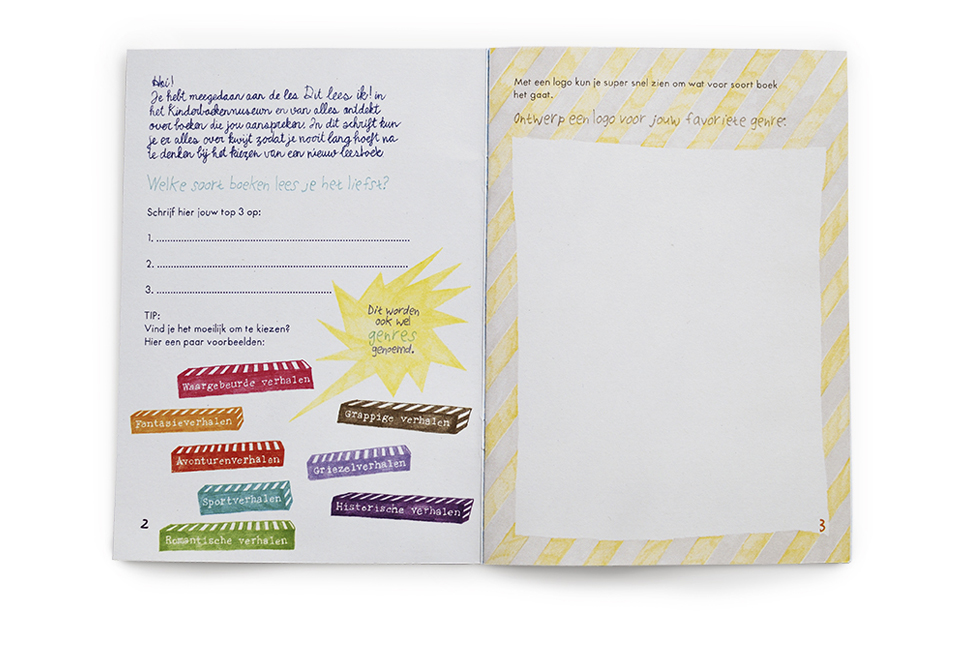 Hei!
Je hebt meegedaan aan de les Dit lees ik! in
het Kinderboekenmuseum en van alles ontdekt
over boeken die jou aanspreken. In dit schrift kun
je er alles over kwijt zodat je nooit lang hoeft na
te denken bij het kiezen van een nieuw leesboek
Welke soort boeken lees je het liefst?
Schrijf hier jouw top 3 op:
1.
2.
3.
Dit worden
ook wel
genres
genoemd.
TIP:
Vind je het moeilijk om te kiezen?
Hier een paar voorbeelden:
Waargebeurde verhalen
Fantasieverhalen
Grappige verhalen
Avonturenverhalen
Griezelverhalen
Sportverhalen
Historische verhalen
Romantische verhalen
2
Met een logo kun je super snel zien om wat voor soort boek
het gaat.
Ontwerp een logo voor jouw favoriete genre:
3